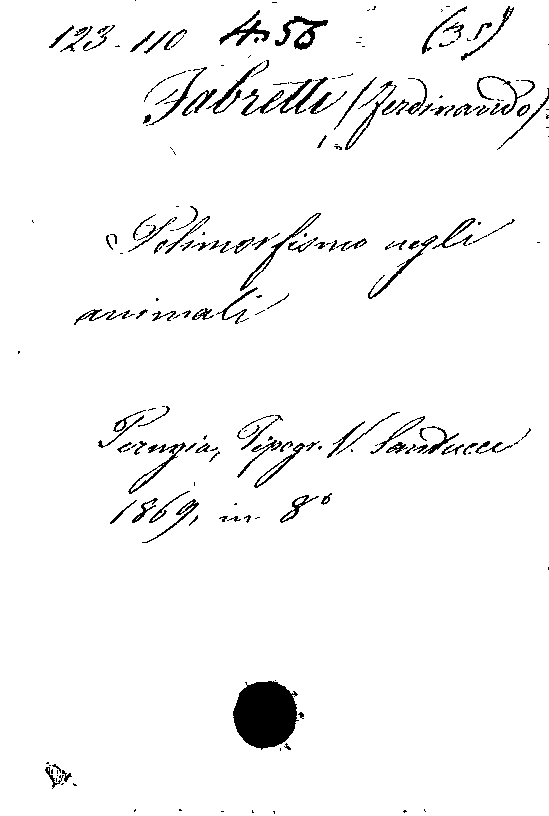 123-110 4.56 (35)
Fabretti (Ferdinando)
Polimorfismo negli
animali
Perugia, Tipogr. V. Santucci
1869, in 8°